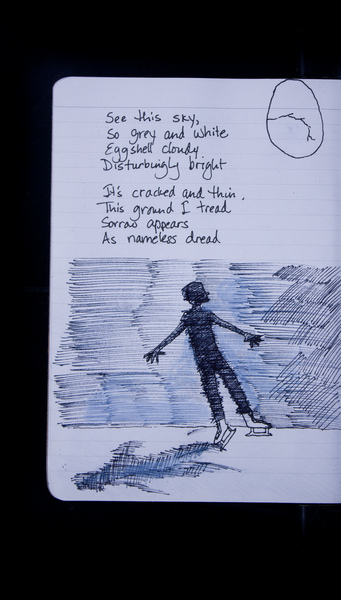 See this sky,
So grey and white
Eggshell cloudy
Disturbingly bright
It's cracked and thin,
This ground I tread
Sorrow appears
As nameless dread